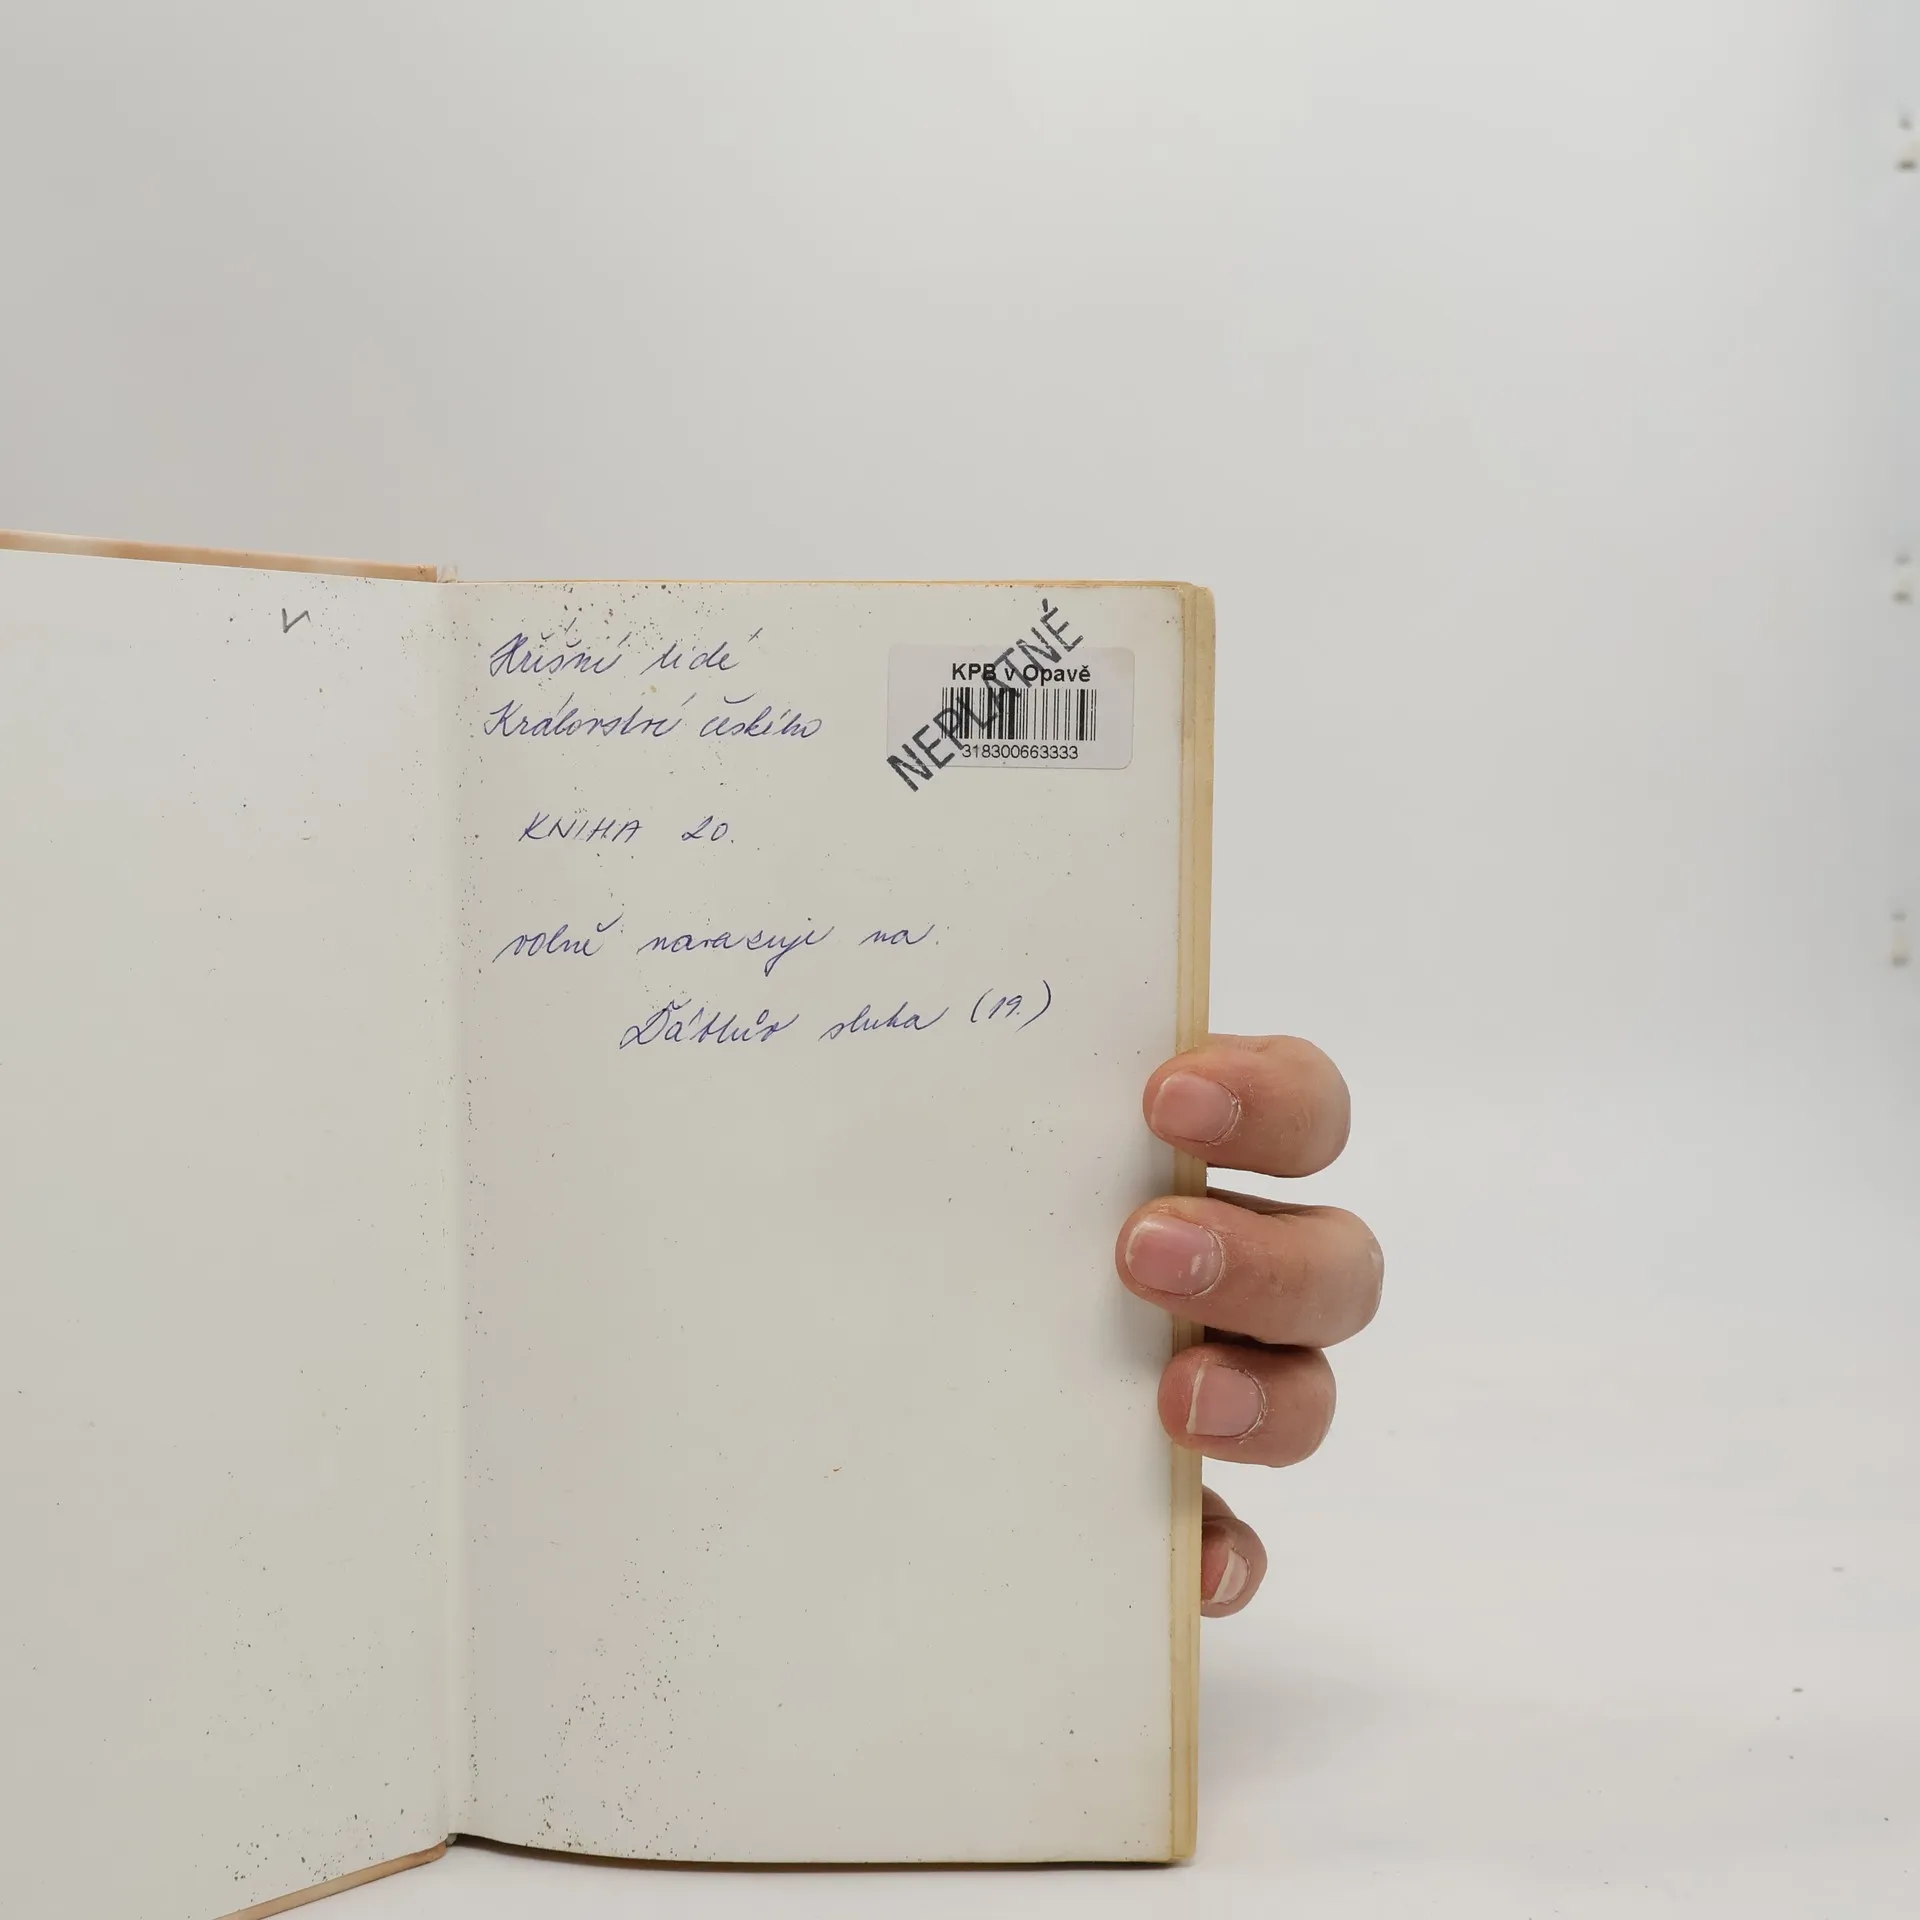 v
Hříšní lidé
Království českého
KPB v Opavě
NEPLATNÉ
318300663333
KNIHA 20.
volně navazuje na:
Ďáblův sluha (19.)